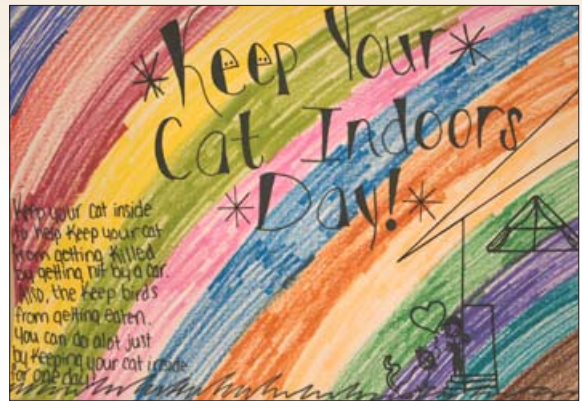 *Keep Your*
Cat Indoors
*Day!*
Keep your cat inside
to help keep your cat
from getting killed
by getting hit by a car.
Also, the keep birds
from getting eaten.
You can do alot just
by keeping your cat inside
for one day!